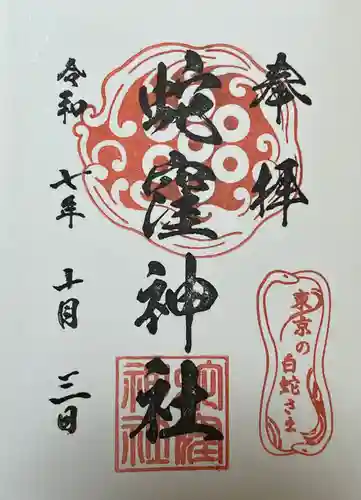 奉拝
蛇窪神社
令和七年十月三日
東京の白蛇さま
蛇窪神社